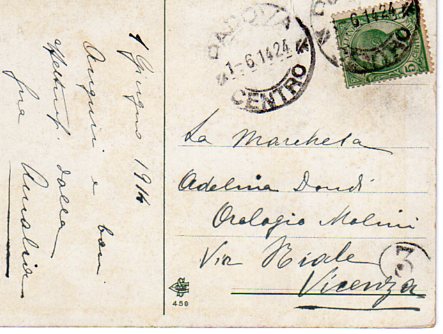 1 Giugno 1914
Auguri e baci
affettuosi dalla
sua Amalia
PADOVA
1-6.14 24
CENTRO
CENTRO
5
La Marchesa
Adelina Dondi
Orologio Molini
Via Riale
Vicenza
3
458